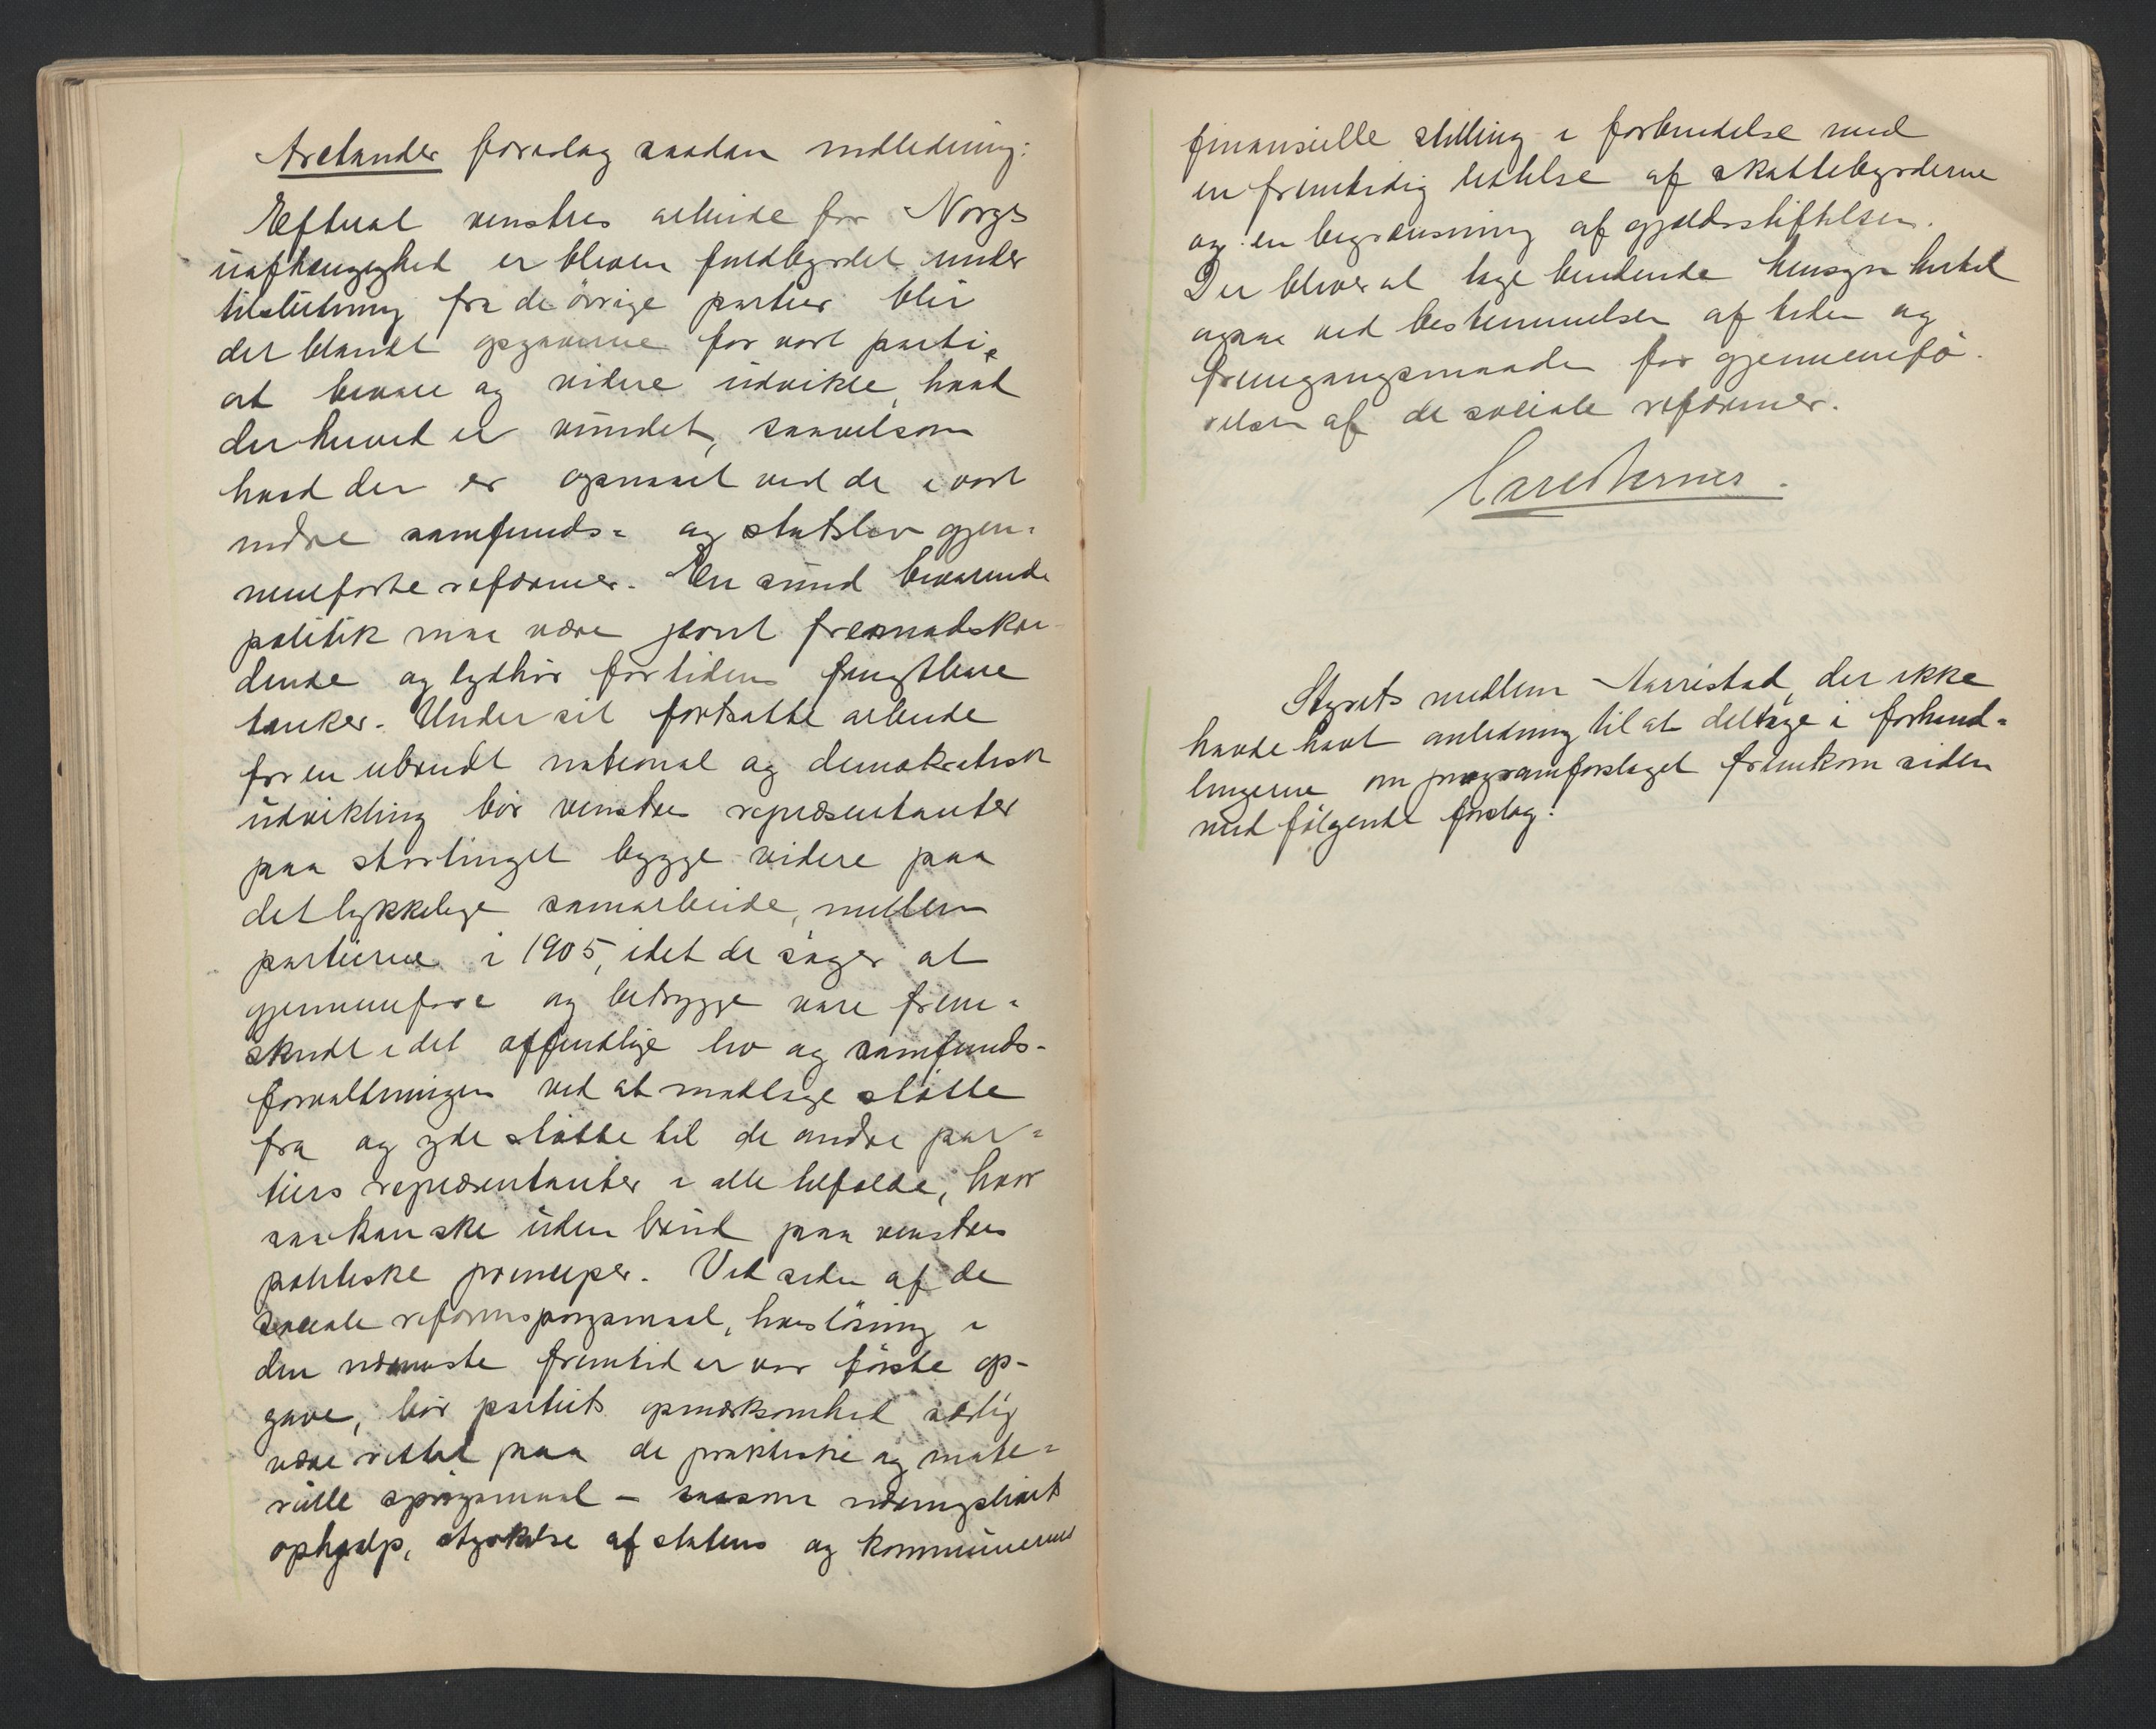 Arctander foreslog saadan indledning:
Efterat venstres arbeide for Norges
uafhængighed er bleven fuldbyrdet under
tilslutning fra de övrige partier blir
det blandt opgaverne for vort parti,
at bevare og videre udvikle, hvad
der herved er vundet, saavelsom
hvad der er opnaaet ved de i vort
indre samfunds- og statsliv gjen-
nemførte reformer. En sund bevarende
politik maa være jevnt fremadskri-
dende og lydhør for tidens frugtbare
tanker. Under sit fortsatte arbeide
for en ubrudt national og demokratisk
udvikling bør venstres repræsentanter
paa stortinget bygge videre paa
det lykkelige samarbeide, mellem
partierne i 1905, idet de søger at
gjennemføre og betrygge vare frem-
skridt i det offentlige liv og samfunds-
forvaltningen ved at modtage støtte
fra og yde støtte til de andre par-
tiers repræsentanter i alle tilfælde, hvor
saa kan ske uden brud paa venstres
politiske principer. Ved siden af de
sociale reformspørgsmaal, hvis løsning i
den nærmeste fremtid er vor første op-
gave, bør partiets opmærksomhed særlig
være rettet paa de praktiske og mate-
rielle spørgsmaal – saasom næringslivets
ophjælp, styrkelse af statens og kommunernes
finansielle stilling i forbindelse med
en fremtidig lettelse af skattebyrderne
og en begrænsning af gjældsstiftelsen.
Der bliver at tage bindende hensyn hertil
ogsaa ved bestemmelsen af tiden og
fremgangsmaaden for gjennemfø-
relsen af de sociale reformer.
Styrets medlem Aarrestad, der ikke
havde havt anledning til at deltage i forhand-
lingerne om programforslaget fremkom siden
med følgende forslag: